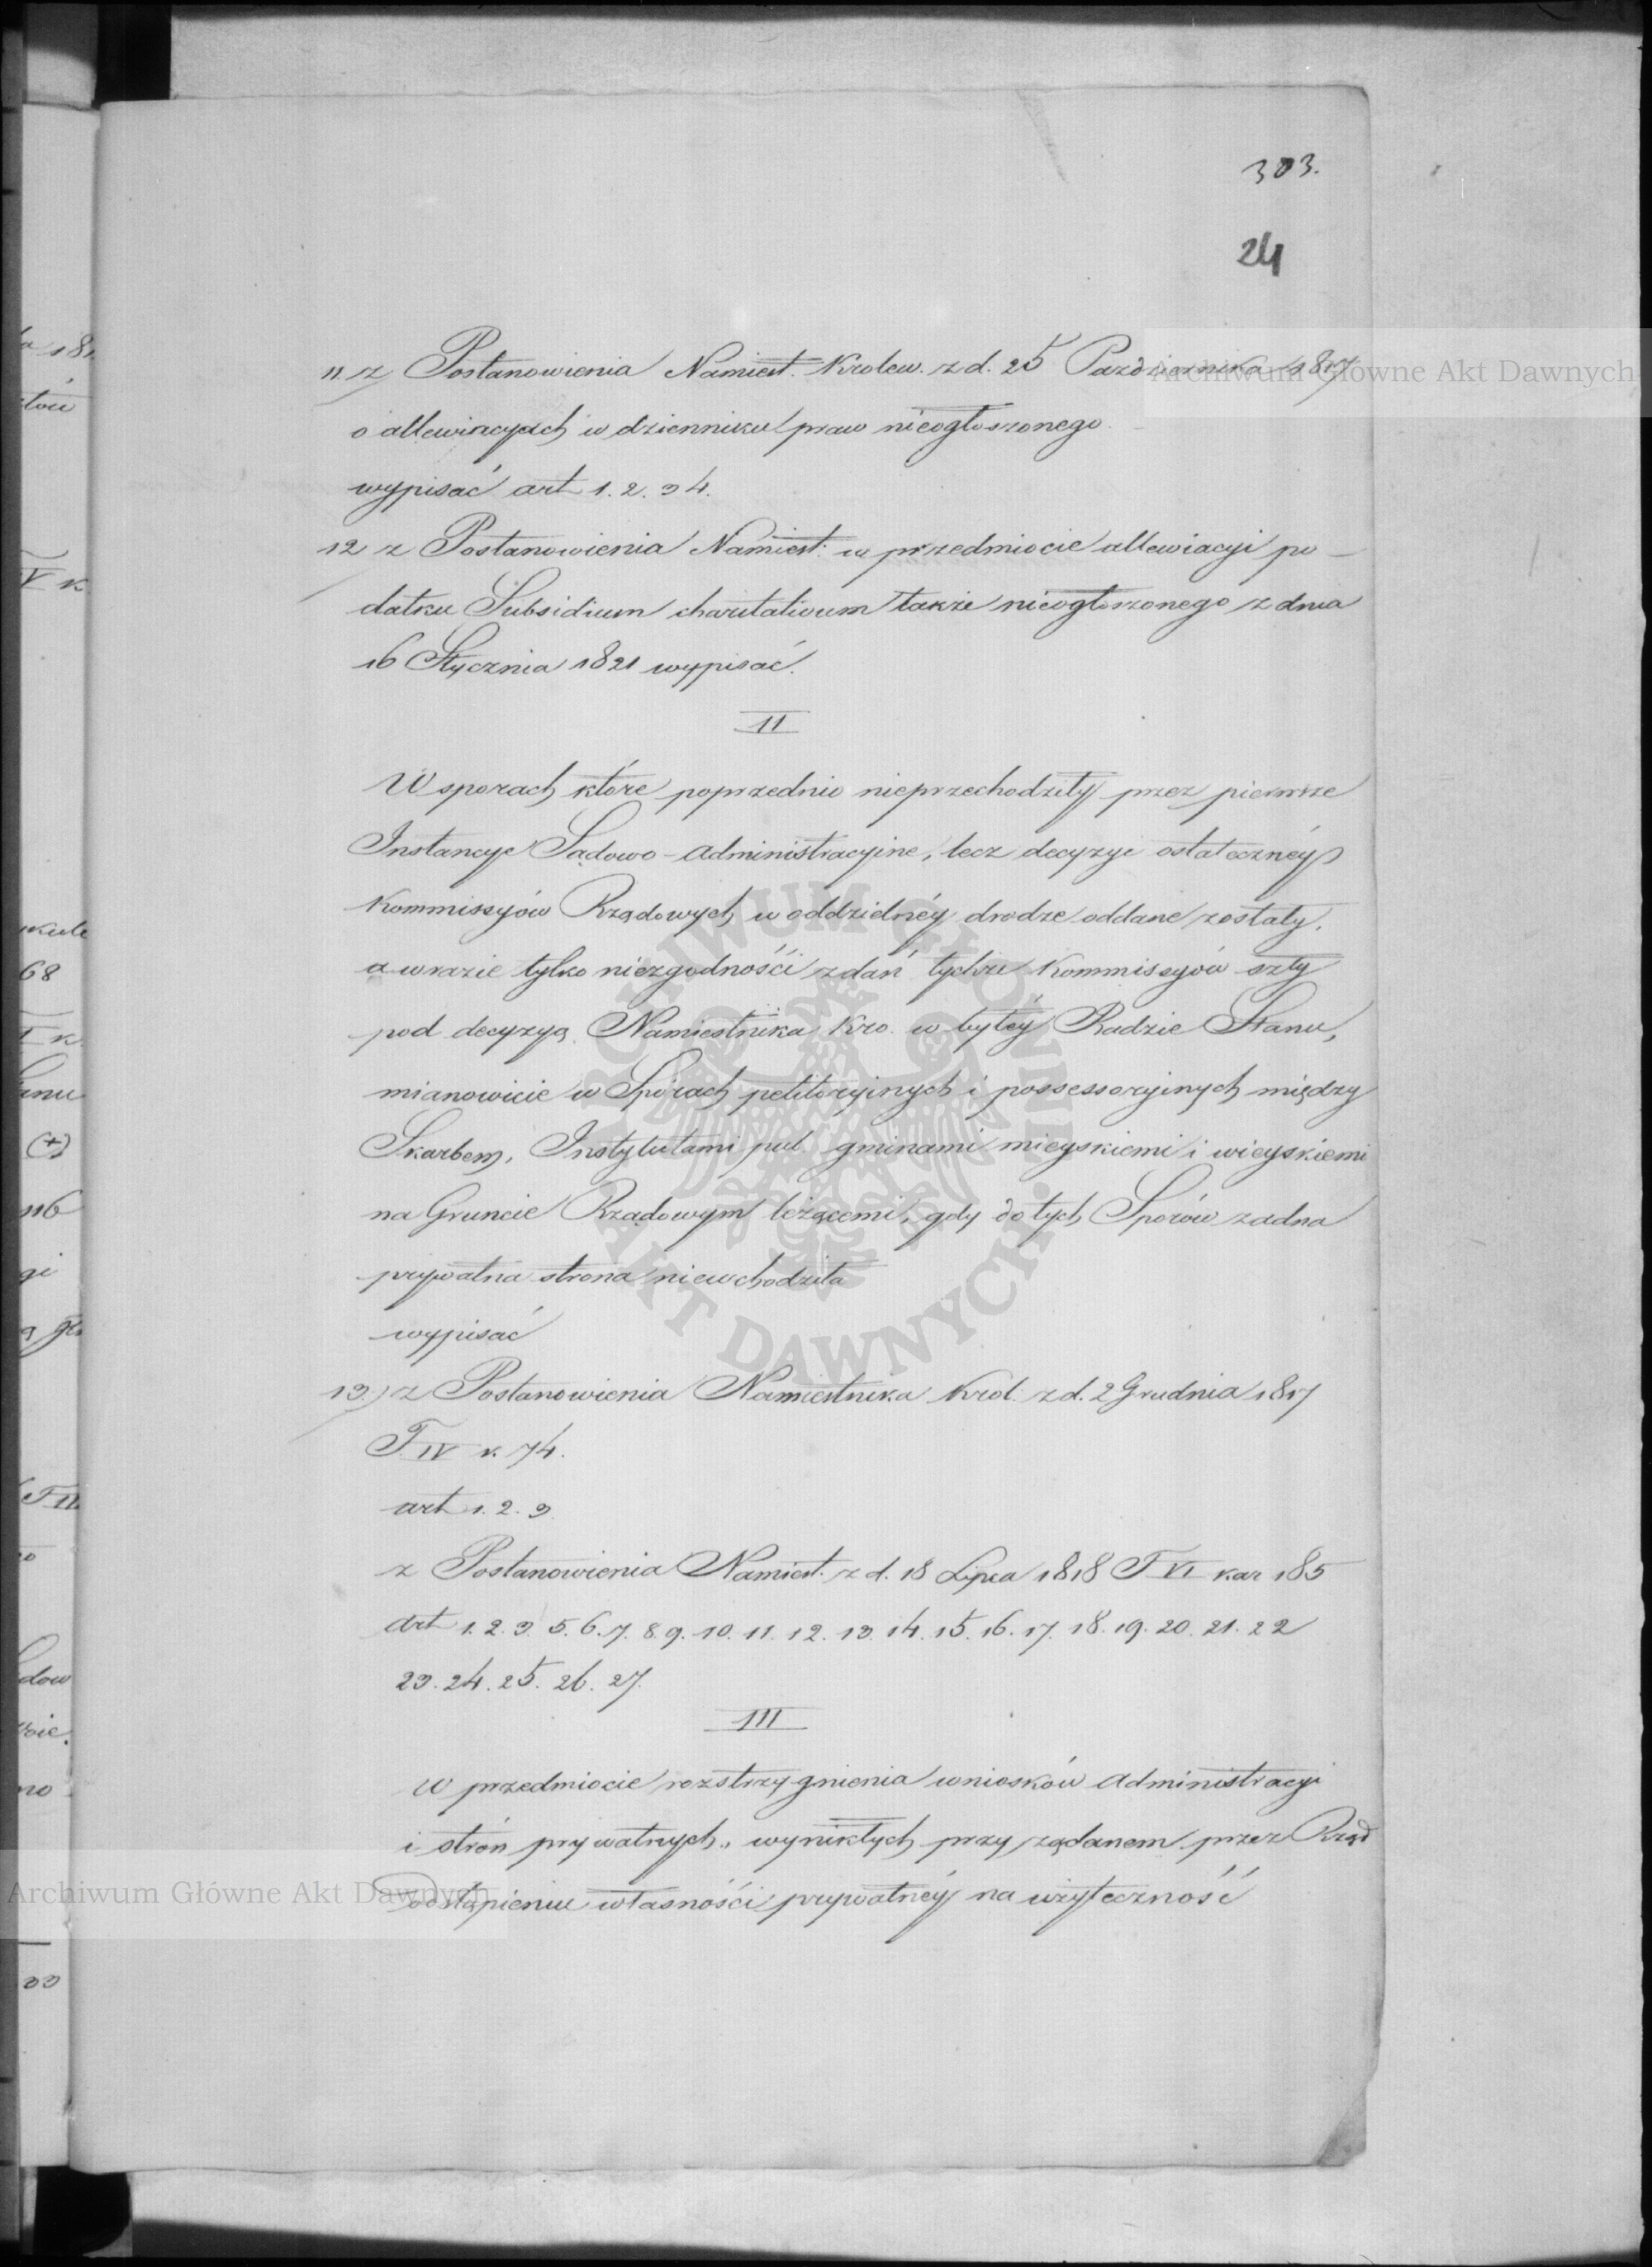 303.
24
11. z Postanowienia Namiest. Krolew. z d. 25 Pazdziernika 1817
o allewiacyach w dzienniku praw nieogłoszonego
wypisać art 1. 2. 3 4.
12 z Postanowienia Namiest: w przedmiocie allewiacyi po-
datku Subsidium charitativum także nieogłoszonego z dnia
16 Stycznia 1821 wypisać.
II
W sporach które poprzednio nieprzechodziły przez pierwsze
Instancye Sądowo-Administracyine, lecz decyzyi ostateczney
Kommissyów Rządowych w oddzielnéy drodze oddane zostały,
a w razie tylko niezgodnośći zdań tychże Kommissyów szły
pod decyzyą Namiestnika Kro. w byłéy Radzie Stanu,
mianowicie w Sporach petitoryinych i possessoryinych między
Skarbem, Instytutami pub. gminami mieyskiemi i wieyskiemi
na Gruncie Rządowym leżącemi, gdy do tych Sporów zadna
prywatna strona niewchodziła
wypisać
13) z Postanowienia Namiestnika Król. z d. 2 Grudnia 1817
T. IV k. 74.
art 1. 2. 3.
z Postanowienia Namiest. z d. 18 Lipca 1818 T VI kar 185
art 1. 2. 3. 5. 6. 7. 8. 9. 10. 11. 12. 13. 14. 15. 16. 17. 18. 19. 20. 21. 22
23. 24. 25. 26. 27.
III
W przedmiocie rozstrzygnienia wniosków Administracyi
i strón prywatnych, wynikłych przy żądanem przez Rząd
odstąpieniu własnośći prywatnéy na użyteczność
Archiwum Główne Akt Dawnych
Archiwum Główne Akt Dawnych
ARCHIWUM GŁÓWNE AKT DAWNYCH